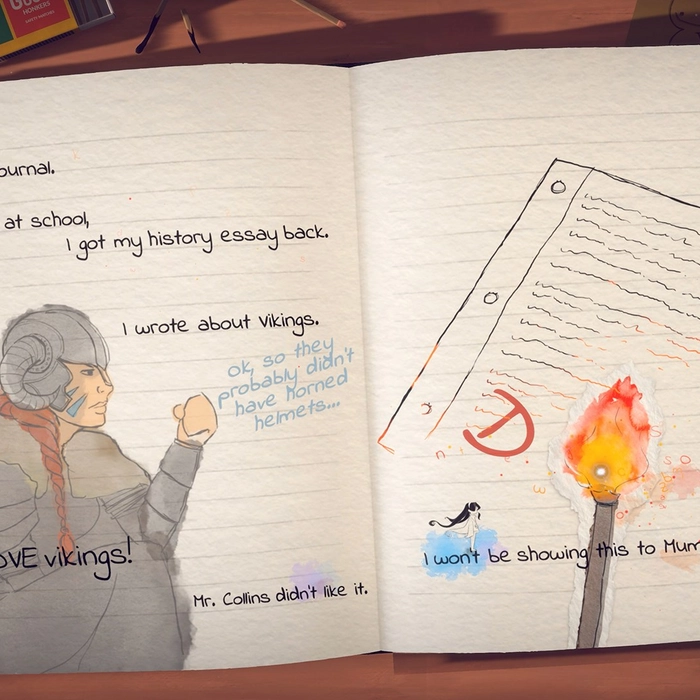 HONKERS
ournal.
at school,
I got my history essay back.
I wrote about vikings.
ok, so they
probably didn't
have horned
helmets...
OVE vikings!
Mr. Collins didn't like it.
D
I won't be showing this to Mum